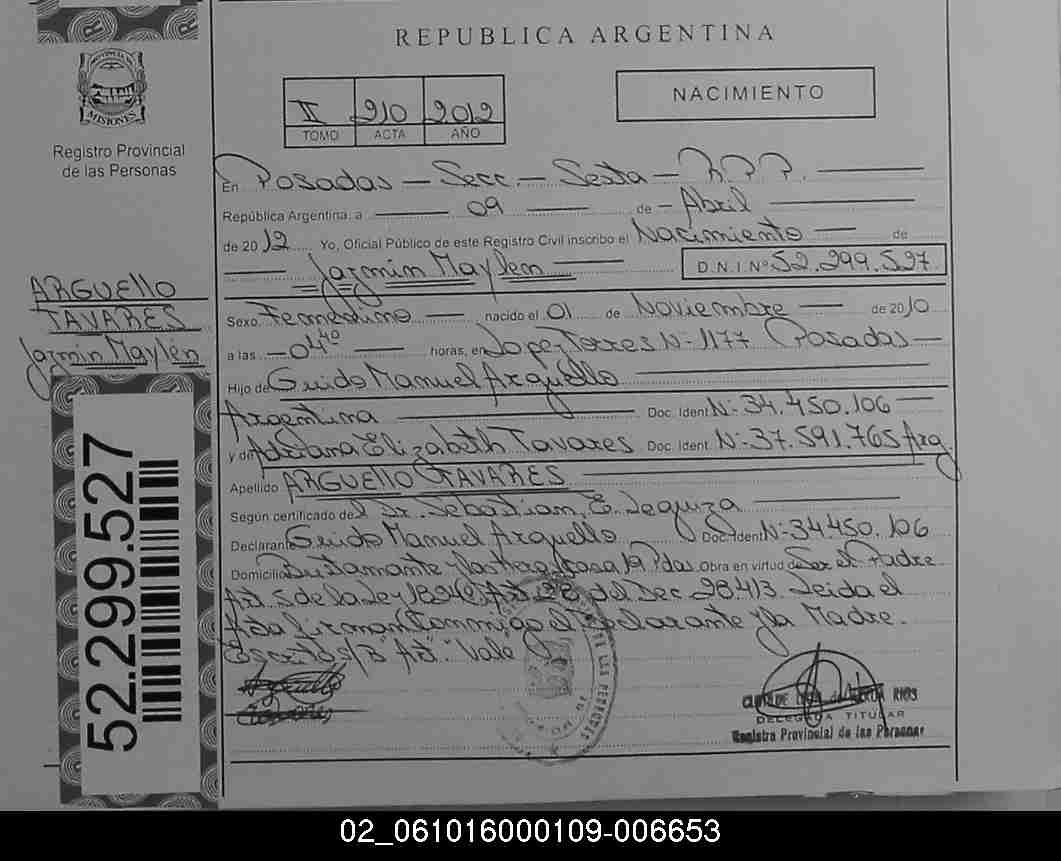 REPUBLICA ARGENTINA
II 210 2012
TOMO ACTA AÑO
NACIMIENTO
MISIONES
Registro Provincial
de las Personas
En Posadas - Secc. - Sexta - R.P.P.
República Argentina, a 09 de - Abril
de 2012 Yo, Oficial Público de este Registro Civil inscribo el Nacimiento de
Jazmin Maylen D.N.I. Nº 52.299.527
ARGUELLO
TAVARES
Jazmin Maylén
Sexo Femenino nacido el 01 de Noviembre de 2010
a las - 04 40 horas, en Lopez Torres N- 1177 Posadas -
Hijo de Guido Manuel Arguello
Argentina Doc. Ident N- 34.450.106
y de Adriana Elizabeth Tavares Doc. Ident. N- 37.591.765 Arg.
Apellido ARGUELLO TAVARES
Según certificado del Dr. Sebastian, E.
Declarante Guido Manuel Arguello Doc. Ident N- 34.450.106
Domicilio Bustamante casa 19 Pdas Obra en virtud de Ser el Padre
Art. 5 de la Ley 18248, Art. 28 del Dec 2841/3. Leida el
Acta firman conmigo el Declarante y la Madre.
"Vale"
Arguello
Tavares
52.299.527
RIOS
DELEGADA TITULAR
Registro Provincial de las Personas
02_061016000109-006653